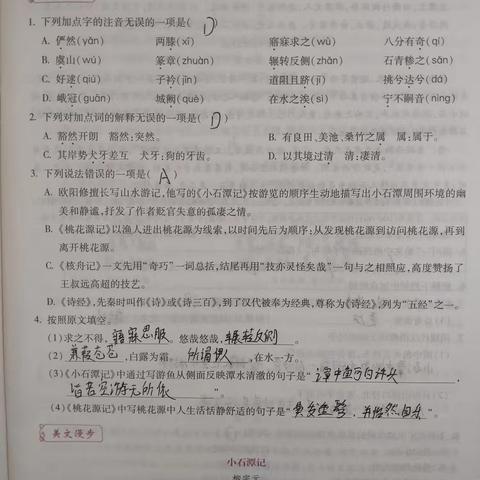 1. 下列加点字的注音无误的一项是( D )
A. 俨然(yān) 两膝(xī) 寤寐求之(wù) 八分有奇(qí)
B. 虞山(wú) 篆章(zhuàn) 辗转反侧(zhǎn) 石青糁之(sǎn)
C. 好逑(qiú) 子衿(jīn) 道阻且跻(jī) 挑兮达兮(dá)
D. 峨冠(guān) 城阙(què) 在水之涘(sì) 宁不嗣音(nìng)
2. 下列对加点词的解释无误的一项是( D )
A. 豁然开朗 豁然:突然。 B. 有良田、美池、桑竹之属 属:属于。
C. 其岸势犬牙差互 犬牙:狗的牙齿。 D. 以其境过清 清:凄清。
3. 下列说法错误的一项是( A )
A. 欧阳修擅长写山水游记,他写的《小石潭记》按游览的顺序生动地描写出小石潭周围环境的幽
美和静谧,抒发了作者贬官失意的孤凄之情。
B. 《桃花源记》以渔人进出桃花源为线索,以时间先后为顺序;从发现桃花源到访问桃花源,再到
离开桃花源。
C. 《核舟记》一文先用“奇巧”一词总括,结尾再用“技亦灵怪矣哉”一句与之相照应,高度赞扬了
王叔远高超的技艺。
D. 《诗经》,先秦时叫作《诗》或《诗三百》,到了汉代被奉为经典,尊称为《诗经》,列为“五经”之一。
4. 按照原文填空。
(1)求之不得,寤寐思服。悠哉悠哉,辗转反侧。
(2)蒹葭苍苍,白露为霜。所谓伊人,在水一方。
(3)《小石潭记》中通过写游鱼从侧面反映潭水清澈的句子是“潭中鱼可百许头,
皆若空游无所依”。
(4)《桃花源记》中写桃花源中人生活恬静舒适的句子是“黄发垂髫,并怡然自乐”。
美文漫步
小石潭记